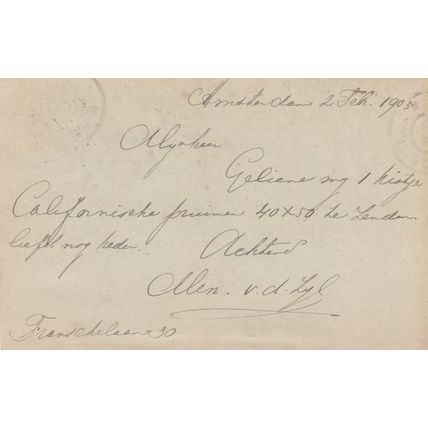 Amsterdam 2 Feb. 1903
Mijnheer
Gelieve mij 1 kistje
Californische pruimen 40x50 te zenden
liefst nog heden. Achtend
v. d. Zijl
Franschelaan 30